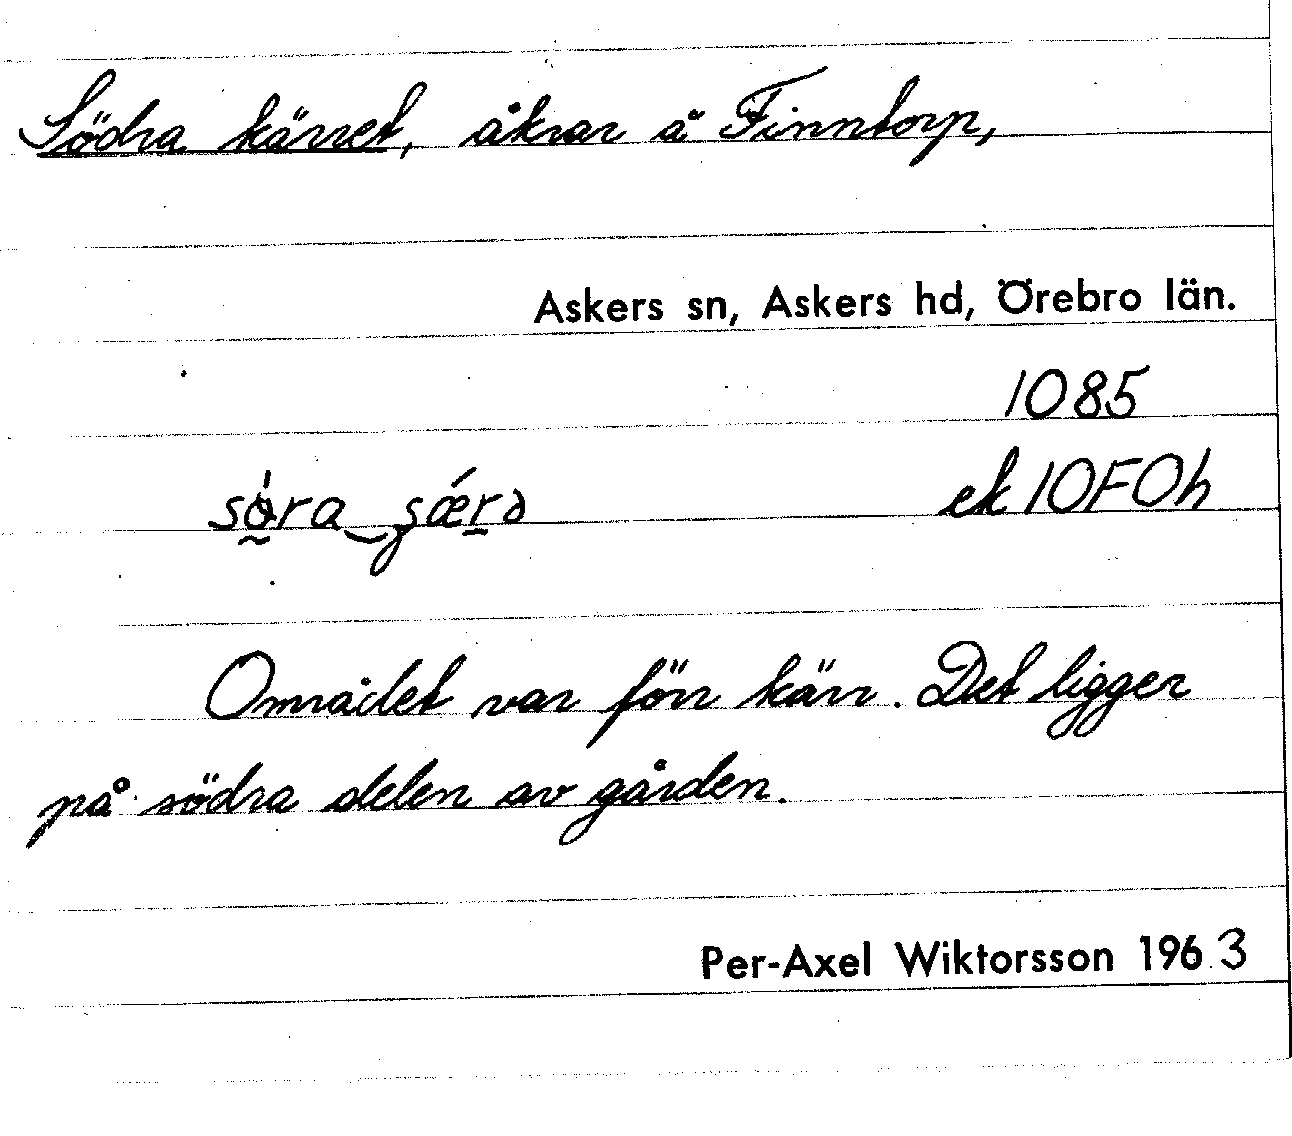 Södra kärret, åkrar å Finntorp,
Askers sn, Askers hd, Örebro län.
1085
ek 10F0h
Området var förr kärr. Det ligger
på södra delen av gården.
Per-Axel Wiktorsson 1963